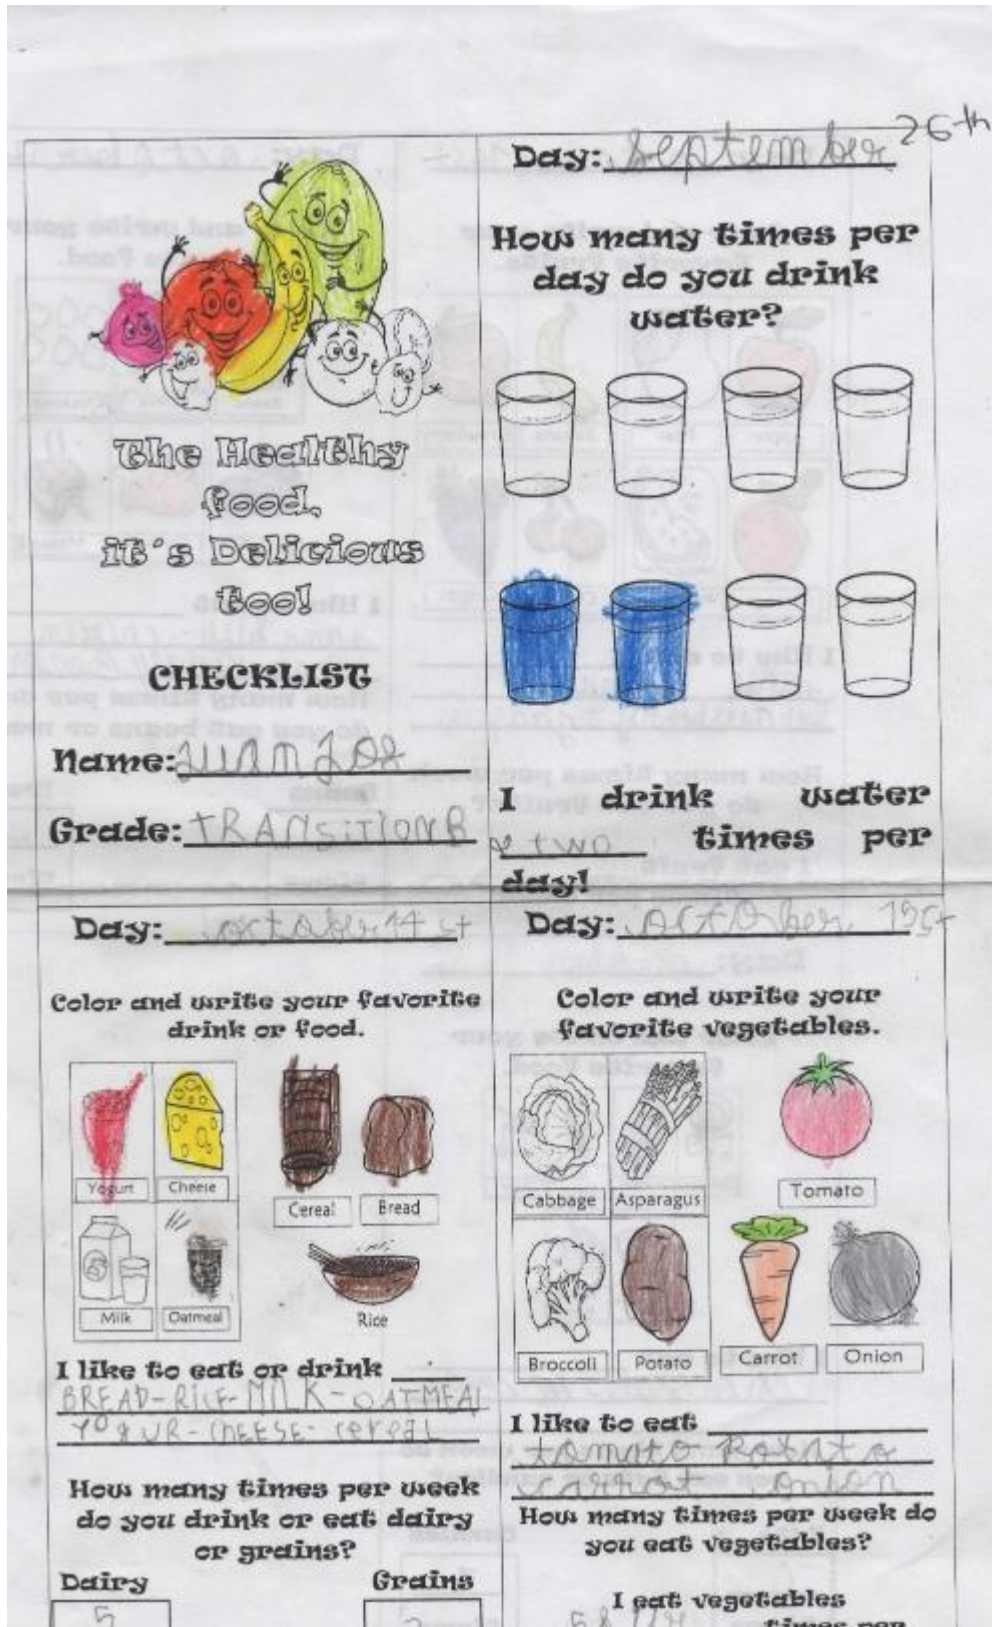 The Healthy
food,
it's Delicious
too!
CHECKLIST
Name: JUAN JOSE
Grade: TRANSITION B
Day: September 26th
How many times per
day do you drink
water?
I drink water
two times per
day!
Day: october 14 st
Color and write your favorite
drink or food.
Yogurt Cheese
Cereal Bread
Milk Oatmeal
Rice
I like to eat or drink
BREAD-RICE-MILK-OATMEAL
YOgUR-CHEESE-cereal
How many times per week
do you drink or eat dairy
or grains?
Dairy Grains
5
Day: october 19st
Color and write your
favorite vegetables.
Cabbage Asparagus Tomato
Broccoli Potato Carrot Onion
I like to eat
tomato Potato
carrot onion
How many times per week do
you eat vegetables?
I eat vegetables
times per